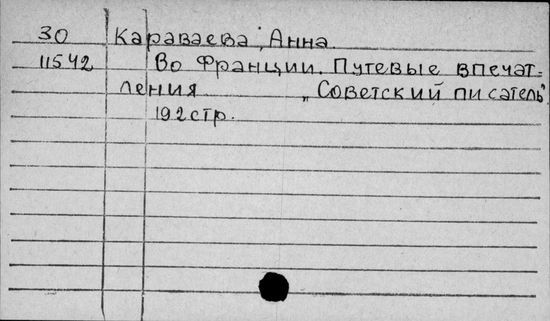 30 Караваева, Анна.
11542 Во Франции. Путевые впечат=
ления „Советский писатель"
192 стр.